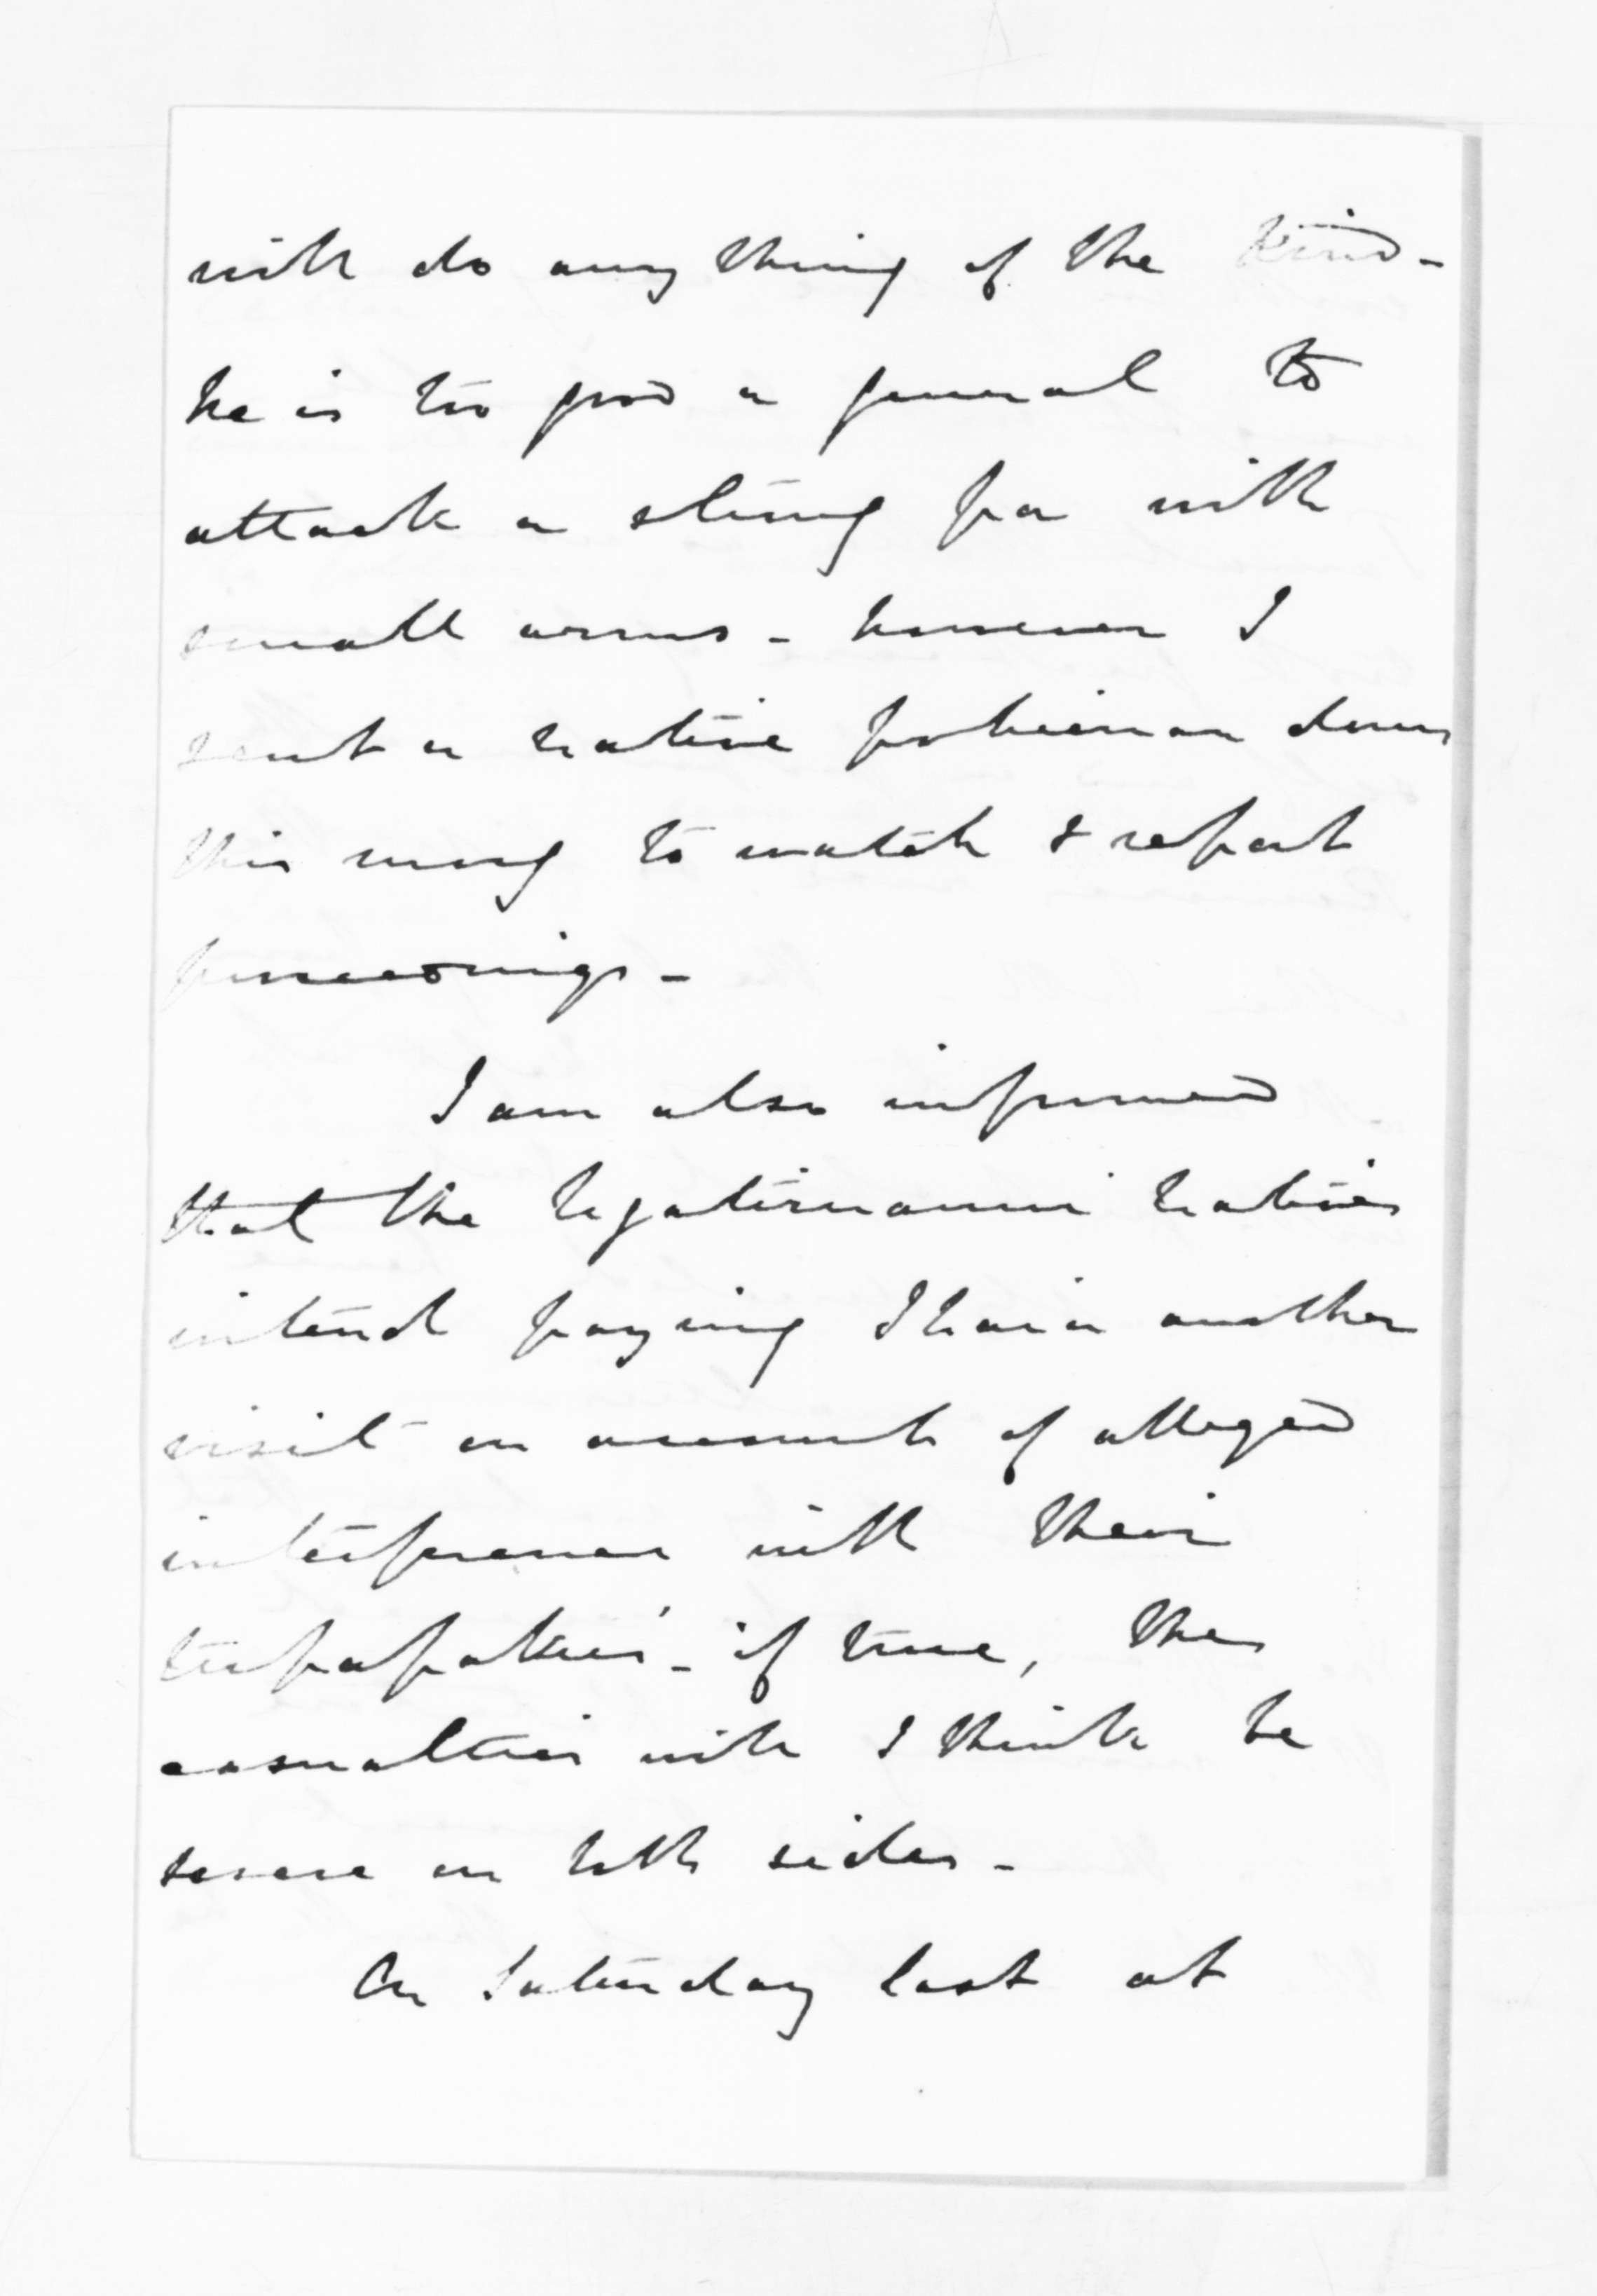 will do any thing of the kind -
he is too good a general to
attack a strong pa with
small arms - however I
sent a native policeman down
this morng to watch & report
proceedings -
I am also informed
that the Ngatimanui natives
intend paying Ihaia another
visit on account of alleged
interference with their
tupapakus' - if true, the
casualties will I think be
severe on both sides -
On Saturday last at